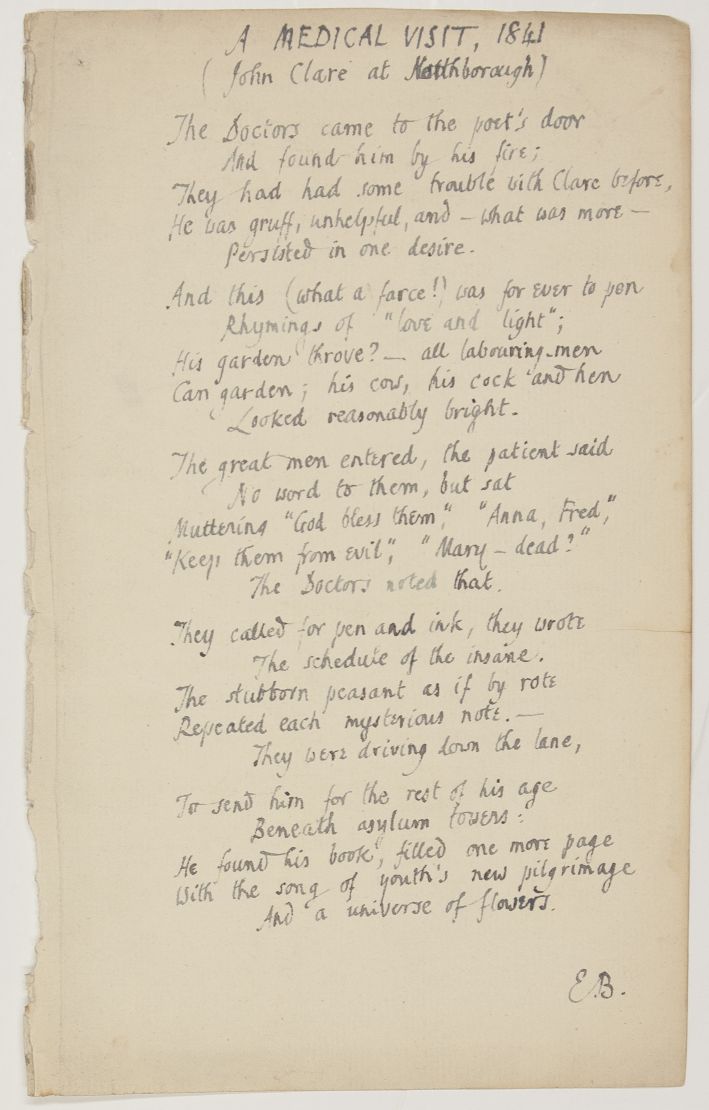 A MEDICAL VISIT, 1841
(John Clare at Northborough)
The Doctors came to the poet's door
And found him by his fire;
They had had some trouble with Clare before,
He was gruff, unhelpful, and – what was more –
Persisted in one desire.
And this (what a farce!) was for ever to pen
Rhymings of "love and light";
His garden throve? – all labouring men
Can garden; his cow, his cock and hen
Looked reasonably bright.
The great men entered, the patient said
No word to them, but sat
Muttering "God bless them", "Anna, Fred,"
"Keep them from evil", "Mary – dead?"
The Doctors noted that.
They called for pen and ink, they wrote
The schedule of the insane.
The stubborn peasant as if by rote
Repeated each mysterious note. –
They were driving down the lane,
To send him for the rest of his age
Beneath asylum towers:
He found his book, filled one more page
With the song of youth's new pilgrimage
And a universe of flowers.
E.B.